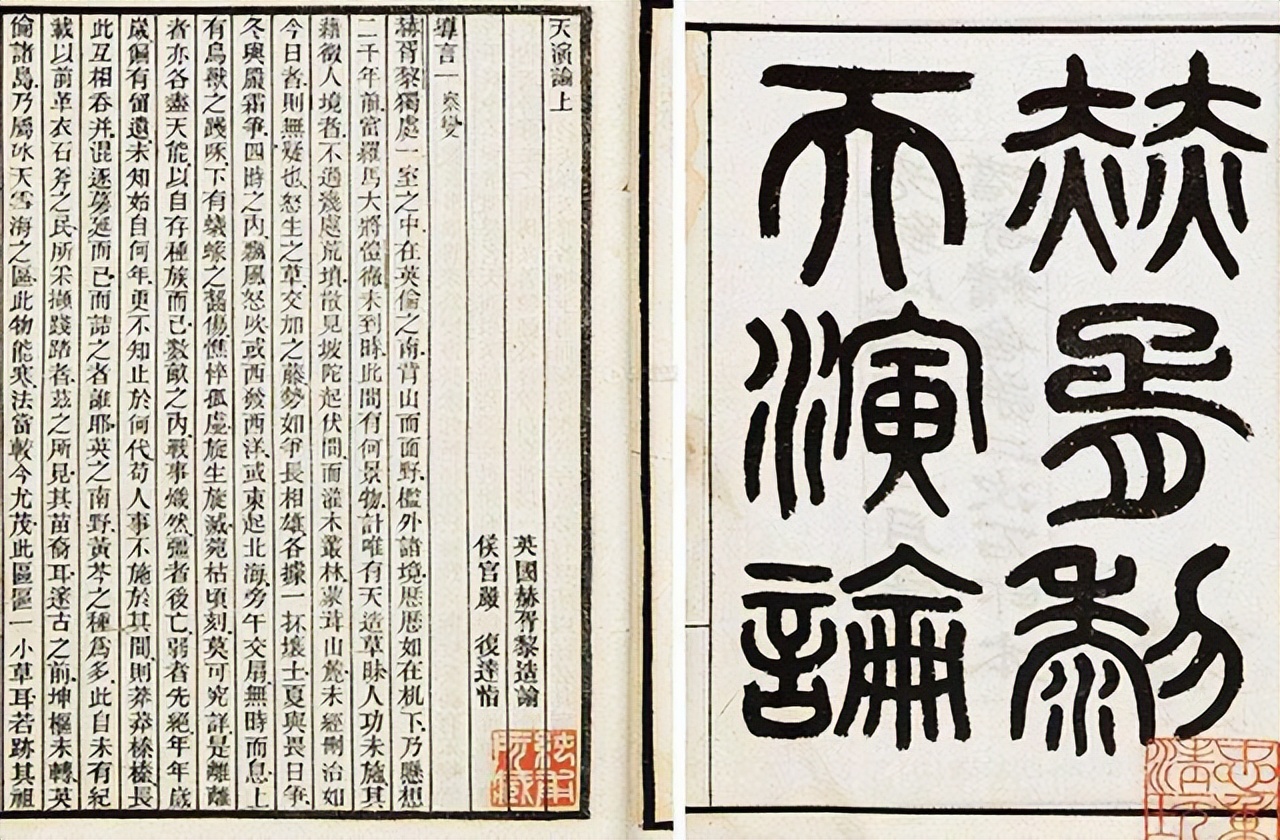 赫胥黎
天演論
天演論上
英國赫胥黎造論
侯官嚴 復達恉
導言一 察變
赫胥黎獨處一室之中在英倫之南背山而面野檻外諸境歷歷如在机下乃懸想
二千年前當羅馬大將愷徹未到時此間有何景物計唯有天造草昧人功未施其
藉徵人境者不過幾處荒墳散見坡陀起伏間而灌木叢林蒙茸山麓未經刪治如
今日者則無疑也怒生之草交加之藤勢如爭長相雄各據一抔壤土夏與畏日爭
冬與嚴霜爭四時之內飄風怒吹或西發西洋或東起北海旁午交扇無時而息上
有鳥獸之踐啄下有蟻蝝之齧傷憔悴孤虛旋生旋滅菀枯頃刻莫可究詳是離離
者亦各盡天能以自存種族而已數畝之內戰事熾然彊者後亡弱者先絕年年歲
歲偏有留遺未知始自何年更不知止於何代苟人事不施於其間則莽莽榛榛長
此互相吞并混逐蔓延而已而詰之者誰耶英之南野黃芩之種爲多此自未有紀
載以前革衣石斧之民所采擷踐踏者茲之所見其苗裔耳邃古之前坤樞未轉英
倫諸島乃屬冰天雪海之區此物能寒法當較今尤茂此區區一小草耳若跡其祖